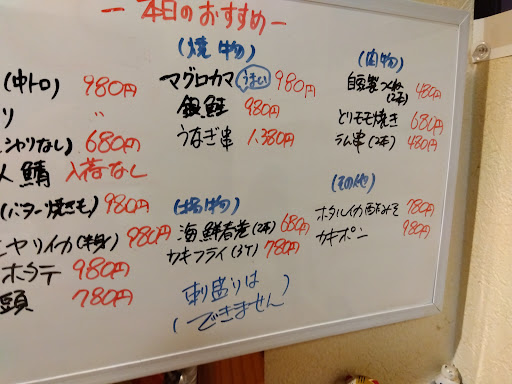 ー 本日のおすすめ ー
(中トロ) 980円
リ 〃
シャリなし) 680円
鯖 入荷なし
(バター焼きモ) 980円
ヤリイカ(半身) 980円
ホタテ 980円
頭 780円
(焼物)
マグロカマ うまい 980円
銀鮭 980円
うなぎ串 1.380円
(揚物)
海鮮春巻(2本) 680円
カキフライ(3ケ) 780円
刺盛りは
(できません)
(肉物)
自家製つくね(2本) 480円
とりモモ焼き 680円
ラム串(2本) 480円
(その他)
ホタルイカ酢みそ 780円
カキポン 980円